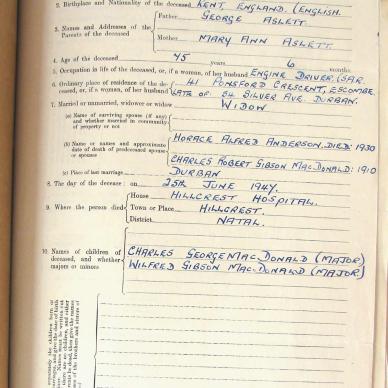 2. Birthplace and Nationality of the deceased KENT, ENGLAND. (ENGLISH.
3. Names and Addresses of the Parents of the deceased
Father GEORGE ASLETT.
Mother MARY ANN ASLETT.
4. Age of the deceased 45 years 6 months
5. Occupation in life of the deceased, or, if a woman, of her husband ENGINE DRIVER. (SAR.
6. Ordinary place of residence of the deceased, or, if a woman, of her husband 41 PONSFORD CRESCENT, ESCOMBE.
LATE OF. 84 SILVER AVE. DURBAN.
7. Married or unmarried, widower or widow WIDOW
(a) Name of surviving spouse (if any) and whether married in community of property or not
(b) Name or names and approximate date of death of predeceased spouse or spouses
HORACE ALFRED ANDERSON. DIED. 1930
CHARLES ROBERT GIBSON MACDONALD: 1910
(c) Place of last marriage DURBAN
8. The day of the decease: on 25TH JUNE 1947.
9. Where the person died
House HILLCREST HOSPITAL.
Town or Place HILLCREST.
District NATAL.
10. Names of children of deceased, and whether majors or minors
CHARLES GEORGE MACDONALD (MAJOR)
WILFRED GIBSON MACDONALD (MAJOR)